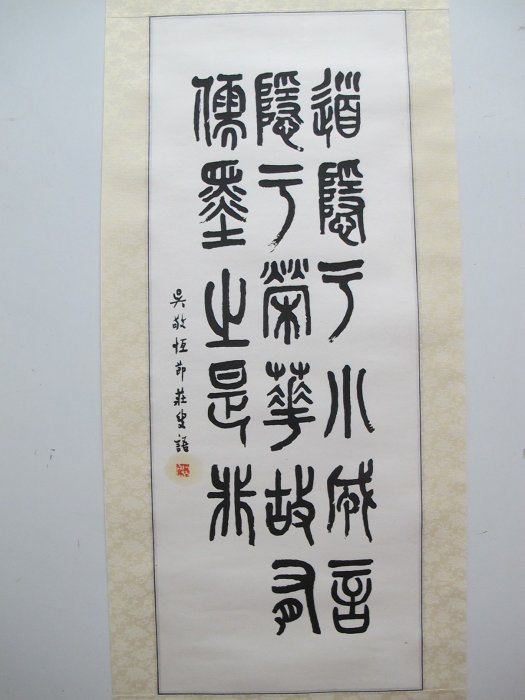 道隱于小成言
隱于榮華故有
儒墨之是非
吳敬恆節莊叟語